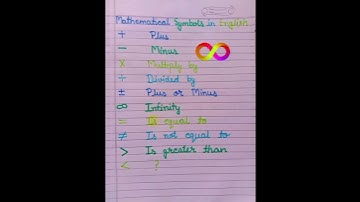 Mathematical Symbols in English
+ Plus
− Minus
× Multiply by
÷ Divided by
± Plus or Minus
∞ Infinity
= Is equal to
≠ Is not equal to
> Is greater than
< ?